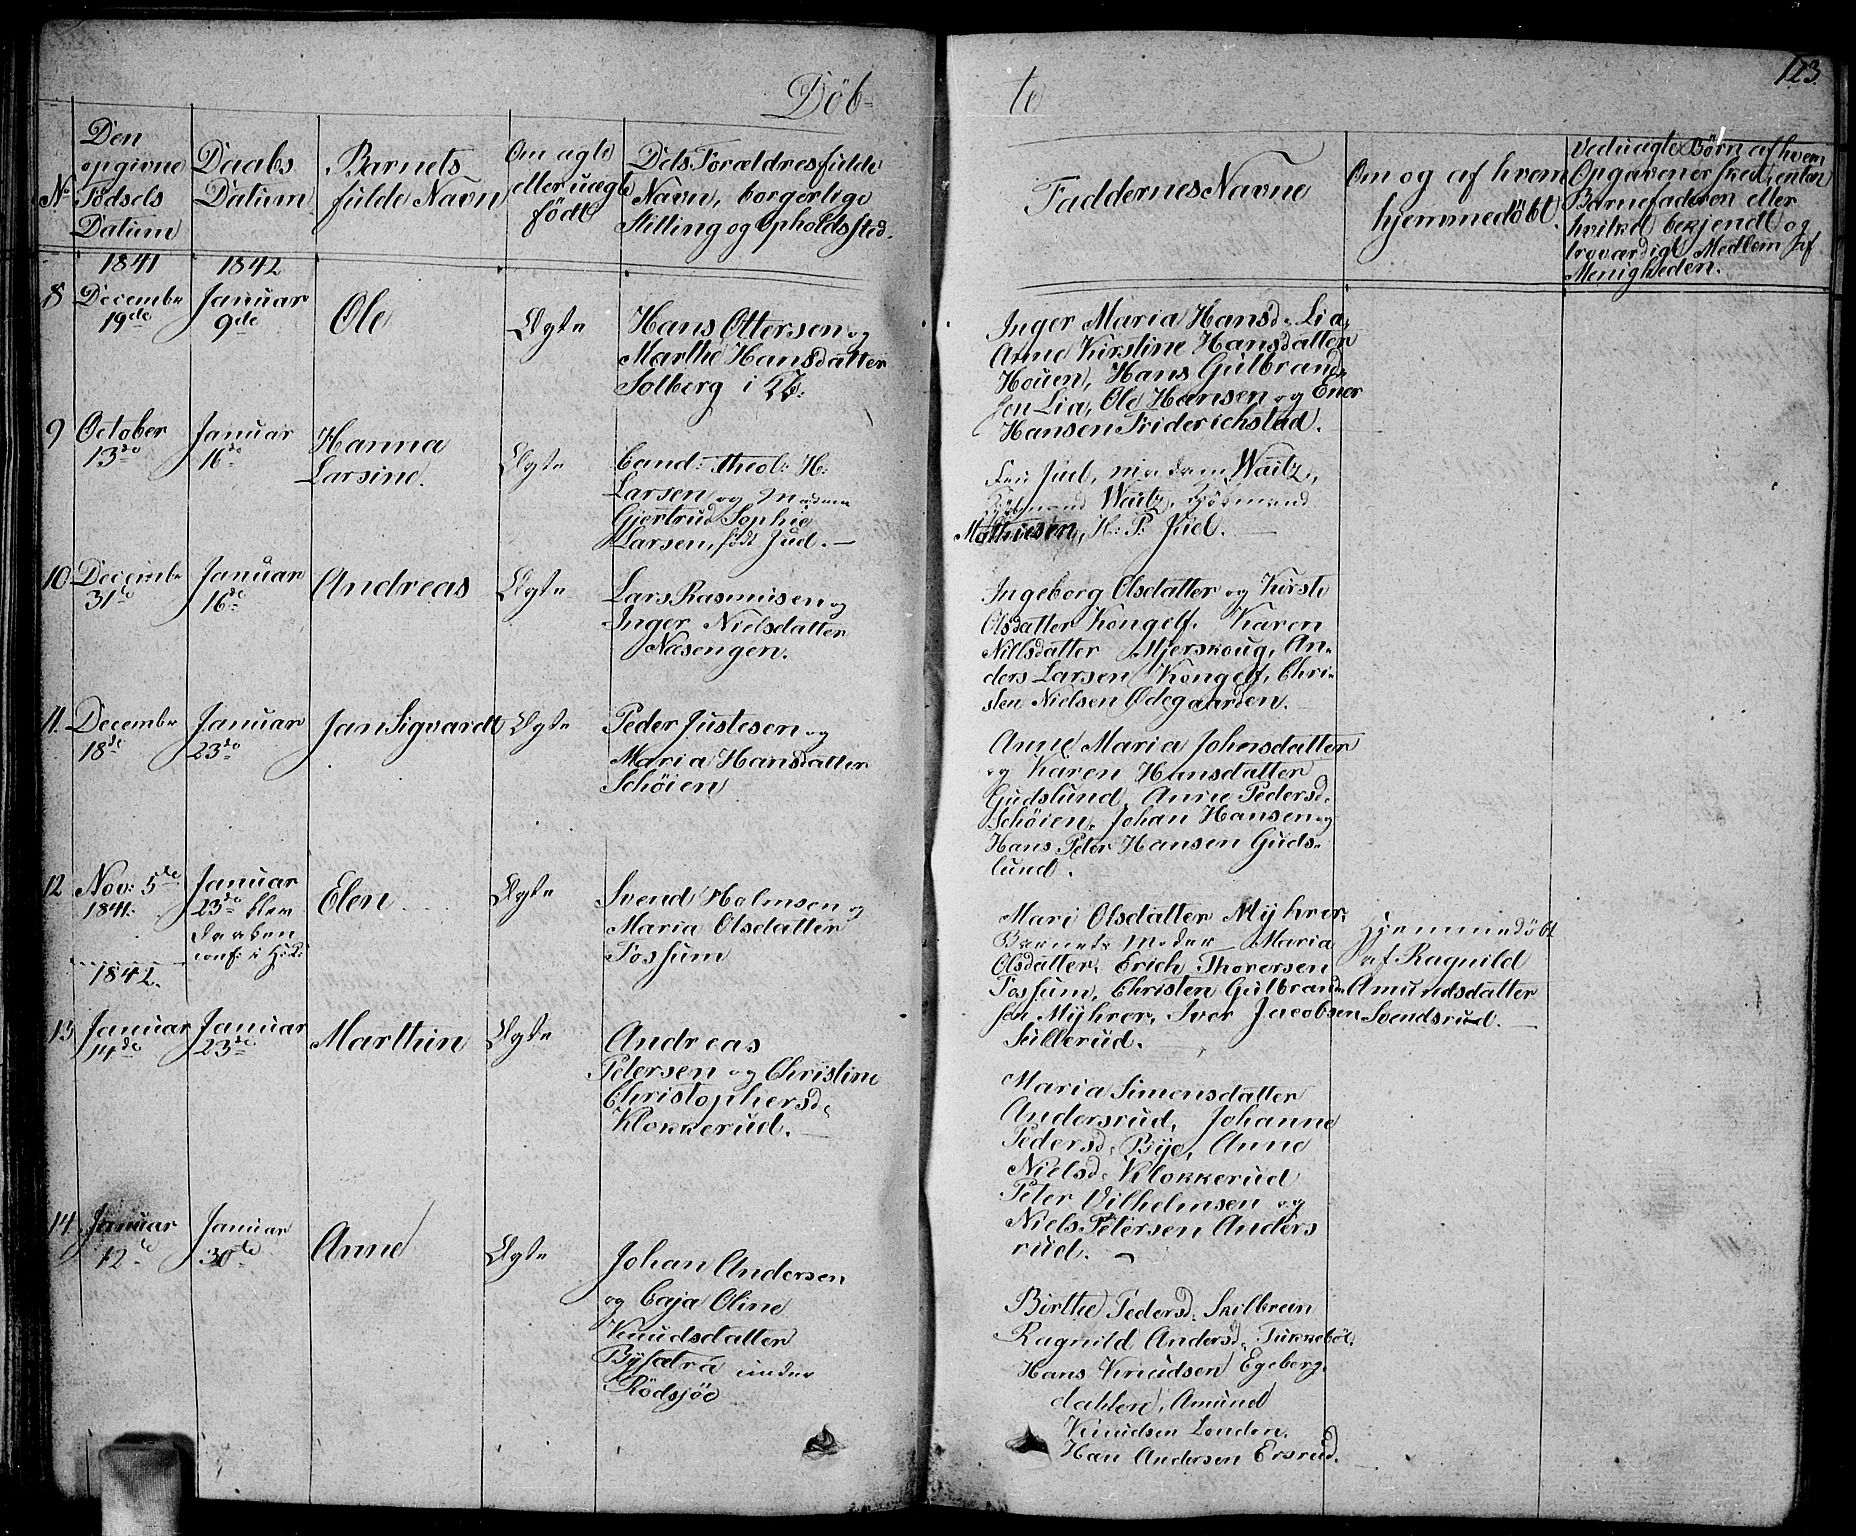 Döb-
te
123.
No
Den
opgivne
Födsels
Datum
Daabs
Datum
Barnets
fulde Navn
Om ægte
eller uægte
født
Dets Forældres fulde
Navn, borgerlige
Stilling og Opholdssted.
Faddernes Navne
Om og af hvem
hjemmedöbt.
Ved uægte Børn af hvem
Opgaven er skeet, enten
Barnefaderen eller
hvilket bekjendt og
troværdigt Medlem af
Menigheden.
1841
1842
8
Decembr
19de
Januar
9de
Ole
Ægte
Hans Ottersen og
Marthe Hansdatter
Solberg i
Inger Maria Hansd. Lia,
Anne Kirstine Hansdatter
Houen, Hans Gulbrand-
sen Lia, Ole Hansen og Ener
Hansen Friderichstad.
9
October
13de
Januar
16de
Hanna
Larsine.
Ægte
Cand: theol: H:
Larsen og Madame
Gjertrud Sophie
Larsen, født Juel. —
Juel, madam Waitz,
Waitz,
Mathiesen, H: P: Juel. —
10
Decembr
31te
Januar
16de
Andreas
Ægte
Lars Rasmusen og
Inger Nielsdatter
Næsengen.
Ingeborg Olsdatter og Kirste
Olsdatter Kongelf. Karen
Nillsdatter Mjerskoug, An-
ders Larsen Kongelf, Chri-
sten Nielsen Ødegaarden. —
11.
Decembr
18de
Januar
23de
Jan Sigvardt
Ægte
Peder Justesen og
Maria Hansdatter
Schöien
Anne Maria Johnsdatter
og Karen Hansdatter
Gudslund, Anne Pedersd.
Schöien. Johan Hansen og
Hans Peter Hansen Guds-
lund.
12
Nov: 5te
1841.
Januar
23de blev
Daaben
conf: i H:K:
Elen
Ægte
Svend Holmsen og
Maria Olsdatter
Fossum
Mari Olsdatter Myhrer,
Barnets Moder Maria
Olsdatter, Erich Thoresen
Fossum, Christen Gulbrand-
sen Myhrer, Iver Jacobsen
Sullerud.
Hjemmedöbt
af Ragnild
Amundsdatter
Svendsrud.
1842.
13
Januar
14de
Januar
23de
Marthin
Ægte
Andreas
Petersen og Christine
Christophersd.
Klokkerud. —
Maria Simensdatter
Andersrud, Johanne
Pedersd. Bye, Anne
Nielsd. Klokkerud
Peter Vilhelmsen og
Niels Petersen Anders
rud. —
14
Januar
12te
Januar
30te
Anne
Ægte
Johan Andersen
og Caja Oline
Knudsdatter
Bysætra under
Rödsjöe
Birthe Pedersd. Skilbrein
Ragnild Andersd. Tukkebøl
Hans Knudsen Egeberg-
dahlen, Amund
Knudsen London.
Han Andersen Ersrud.